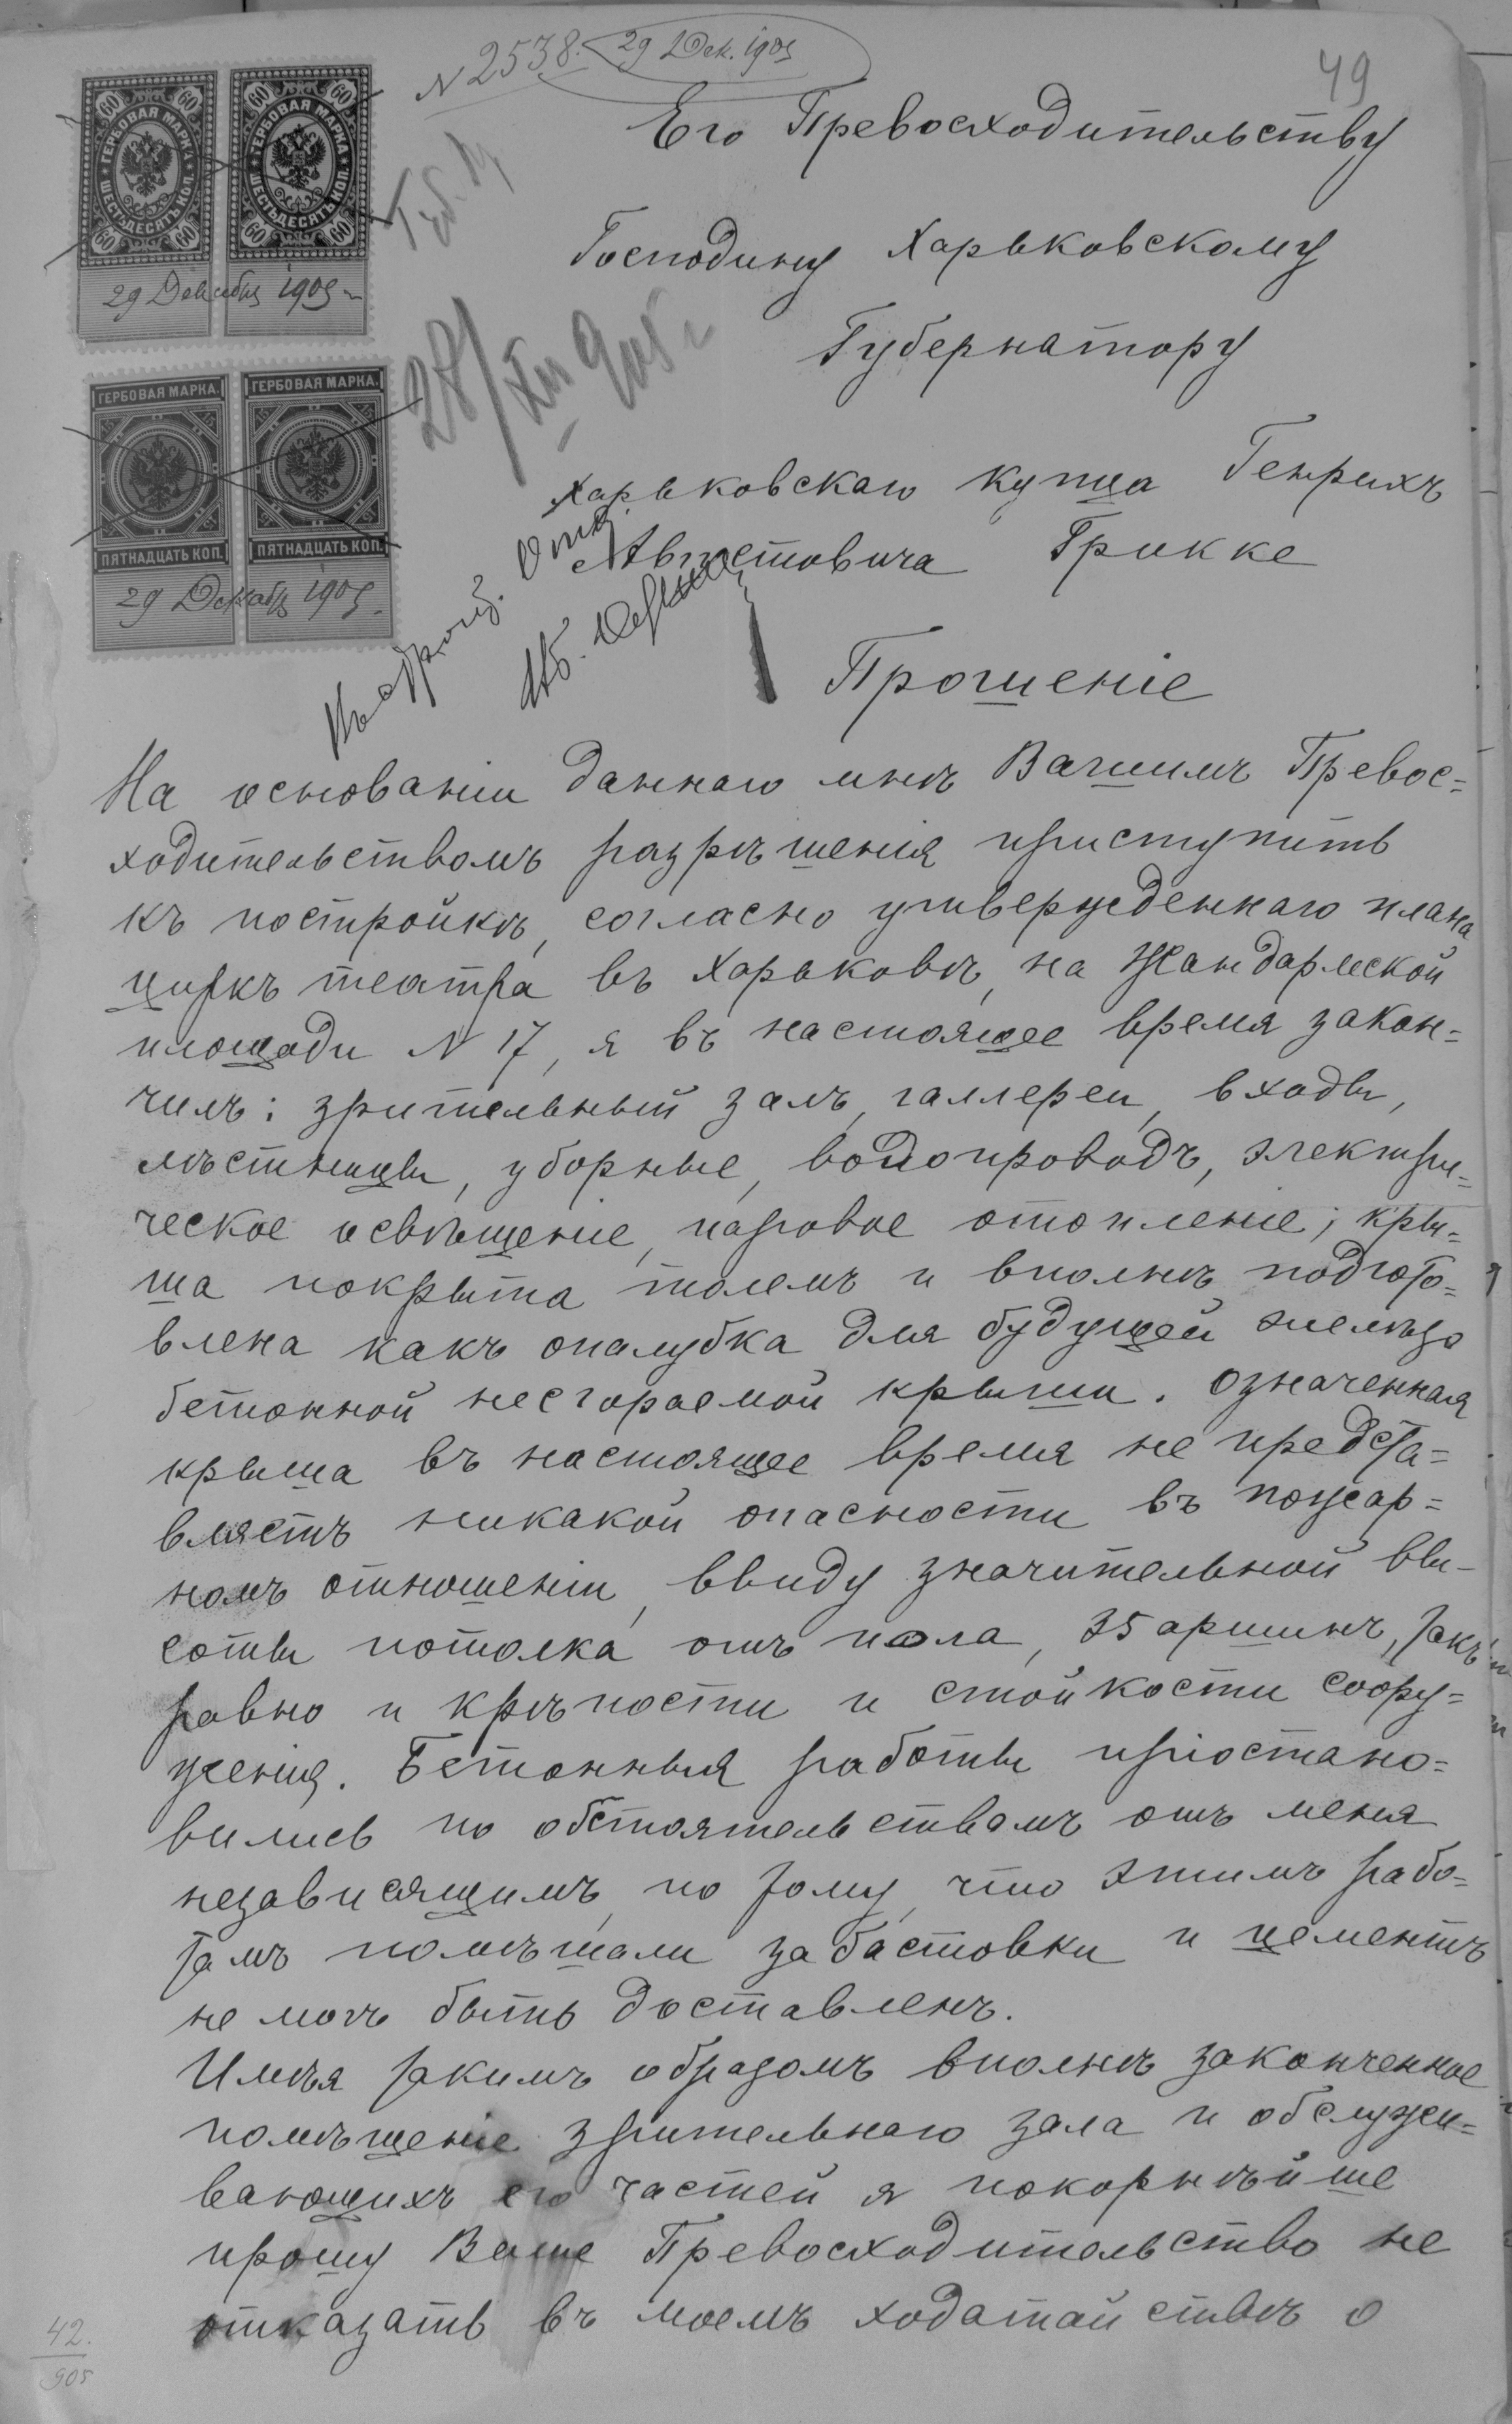 N 2538. 29 Дек. 1905
49
Его Превосходительству
Господину Харьковскому
Губернатору
Харьковскаго купца Генрихъ
Августовича Грикке
Прошеніе
ГЕРБОВАЯ МАРКА ШЕСТЬДЕСЯТЪ КОП. 60 60 60 60
ГЕРБОВАЯ МАРКА ШЕСТЬДЕСЯТЪ КОП. 60 60 60 60
29 Декабря 1905 г.
28/XII 905 г
ГЕРБОВАЯ МАРКА. ПЯТНАДЦАТЬ КОП.
ГЕРБОВАЯ МАРКА. ПЯТНАДЦАТЬ КОП.
29 Декабр 1905.
На основаніи даннаго мнѣ Вашимъ Превос=
ходительствомъ разрѣшенія приступить
къ постройкѣ, согласно утвержденнаго плана
циркъ театра въ Харьковѣ, на Жандармской
площади N 17, я въ настоящее время закон=
чилъ: зрительный залъ, галлереи, входы,
лѣстницы, уборные, водопроводъ, электри=
ческое освѣщеніе, паровое отопленіе; кры=
ша покрыта толемъ и вполнѣ подгото=
влена какъ опалубка для будущей желѣзо
бетонной несгораемой крыши. Означенная
крыша въ настоящее время не предста=
вляетъ никакой опасности въ пожар=
номъ отношеніи, ввиду значительной вы-
соты потолка отъ пола, 35 аршинъ, такъ
равно и крѣпости и стойкости соору=
женія. Бетонныя работы пріостано=
вились по обстоятельствамъ отъ меня
независящимъ, по тому, что этимъ рабо=
тамъ помѣшали забастовки и цементъ
не могъ быть доставленъ.
Имѣя такимъ образомъ вполнѣ законченное
помѣщеніе зрительнаго зала и обслужи=
вающихъ его частей я покорнѣйше
прошу Ваше Превосходительство не
отказать въ моемъ ходатайствѣ о
42.
905